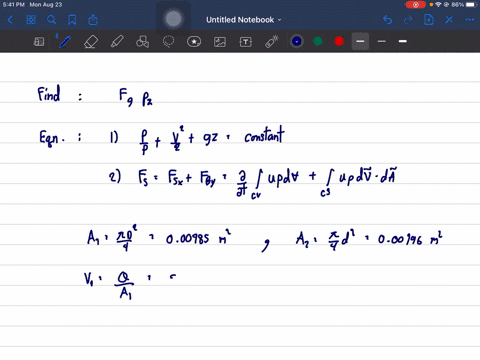 5:41 PM Mon Aug 23
86%
Untitled Notebook
Find : Fg P2
Eqn. : 1) P/ρ + V²/2 + gz = constant
2) Fs = Fsx + FBy = ∂/∂t ∫cv uρd∀ + ∫cs uρdV̄·dĀ
A1 = πD²/4 = 0.00985 m² , A2 = π/4 d² = 0.00196 m²
V1 = Q/A1 =